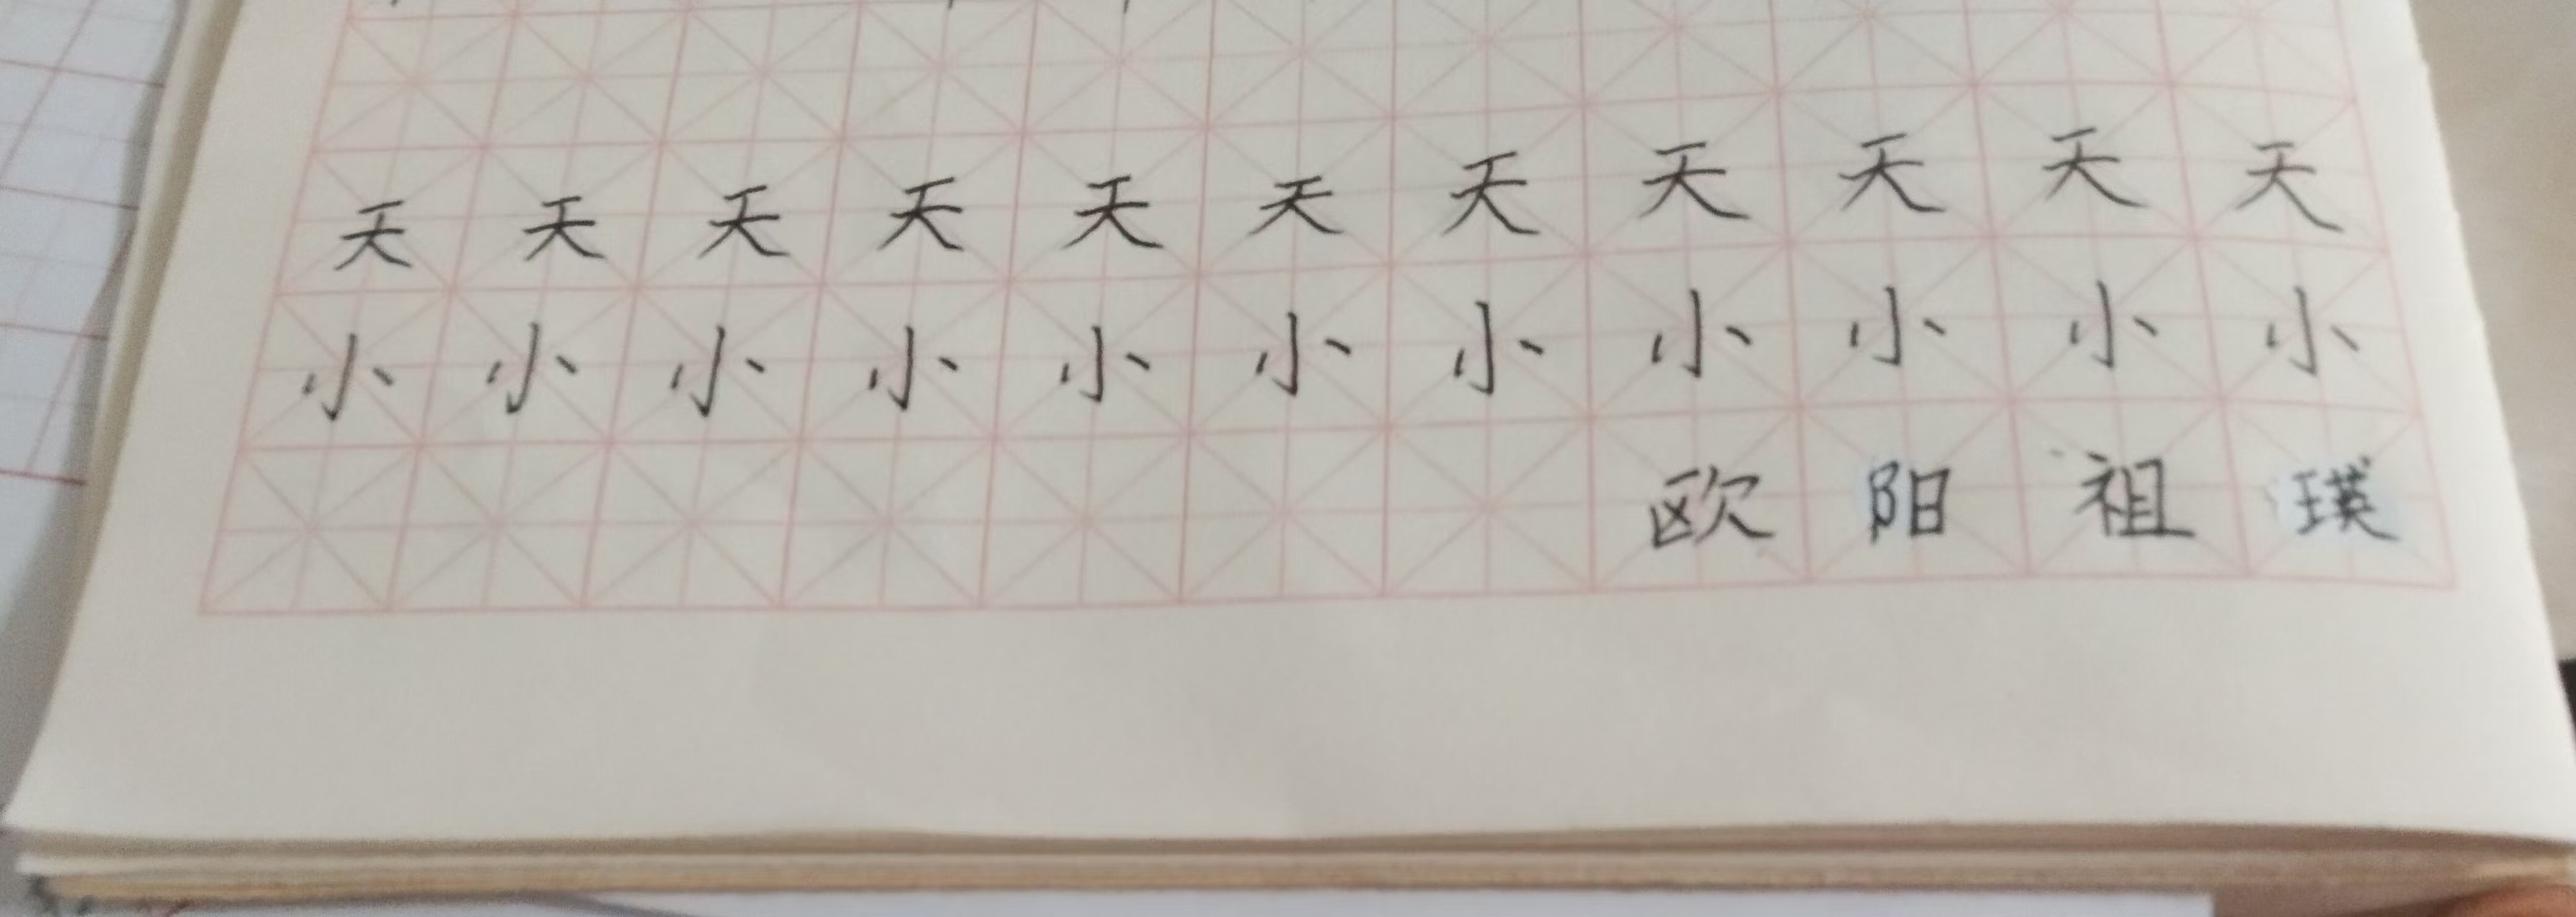 天天天天天天天天天天天
小小小小小小小小小小小
欧阳祖瑛